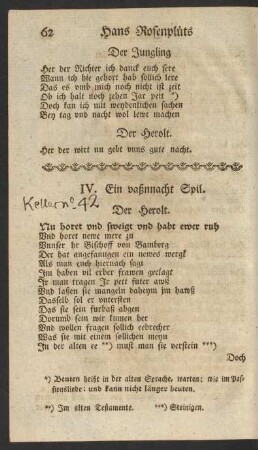 62 Hans Rosenplüts
Der Jungling
Her der Richter ich danck euch sere
Wann ich hie gehort hab sollich lere
Das es vmb mich noch nicht ist zeit
Ob ich halt noch zehen Jar peit *)
Doch kan ich mit weydenlichen sachen
Bey tag vnd nacht wol lewt machen
Der Herolt.
Her der wirt nu gebt vnns gute nacht.
IV. Ein vaßnnacht Spil.
Keller no 42
Der Herolt.
Nu horet vnd sweigt vnd habt ewer ruh
Vnd horet newe mere zu
Vunser hr Bischoff von Bamberg
Der hat angefanngen ein newes wergk
Als man euch hiernach sagt
Im haben vil erber frawen geclagt
Ir man tragen Ir pett futer awß
Vnd lassen sie mangeln daheym im hawß
Dasselb sol er vntersten
Das sie sein furbaß abgen
Dorumb sein wir kumen her
Vnd wollen fragen sollich eebrecher
Was sie mit einem sollichen meyn
In der alten ee **) must man sie verstein ***)
Doch
*) Beuten heißt in der alten Sprache, warten; wie im Pas-
sionsliede: und kann nicht länger beuten.
**) Im alten Testamente. ***) Steinigen.